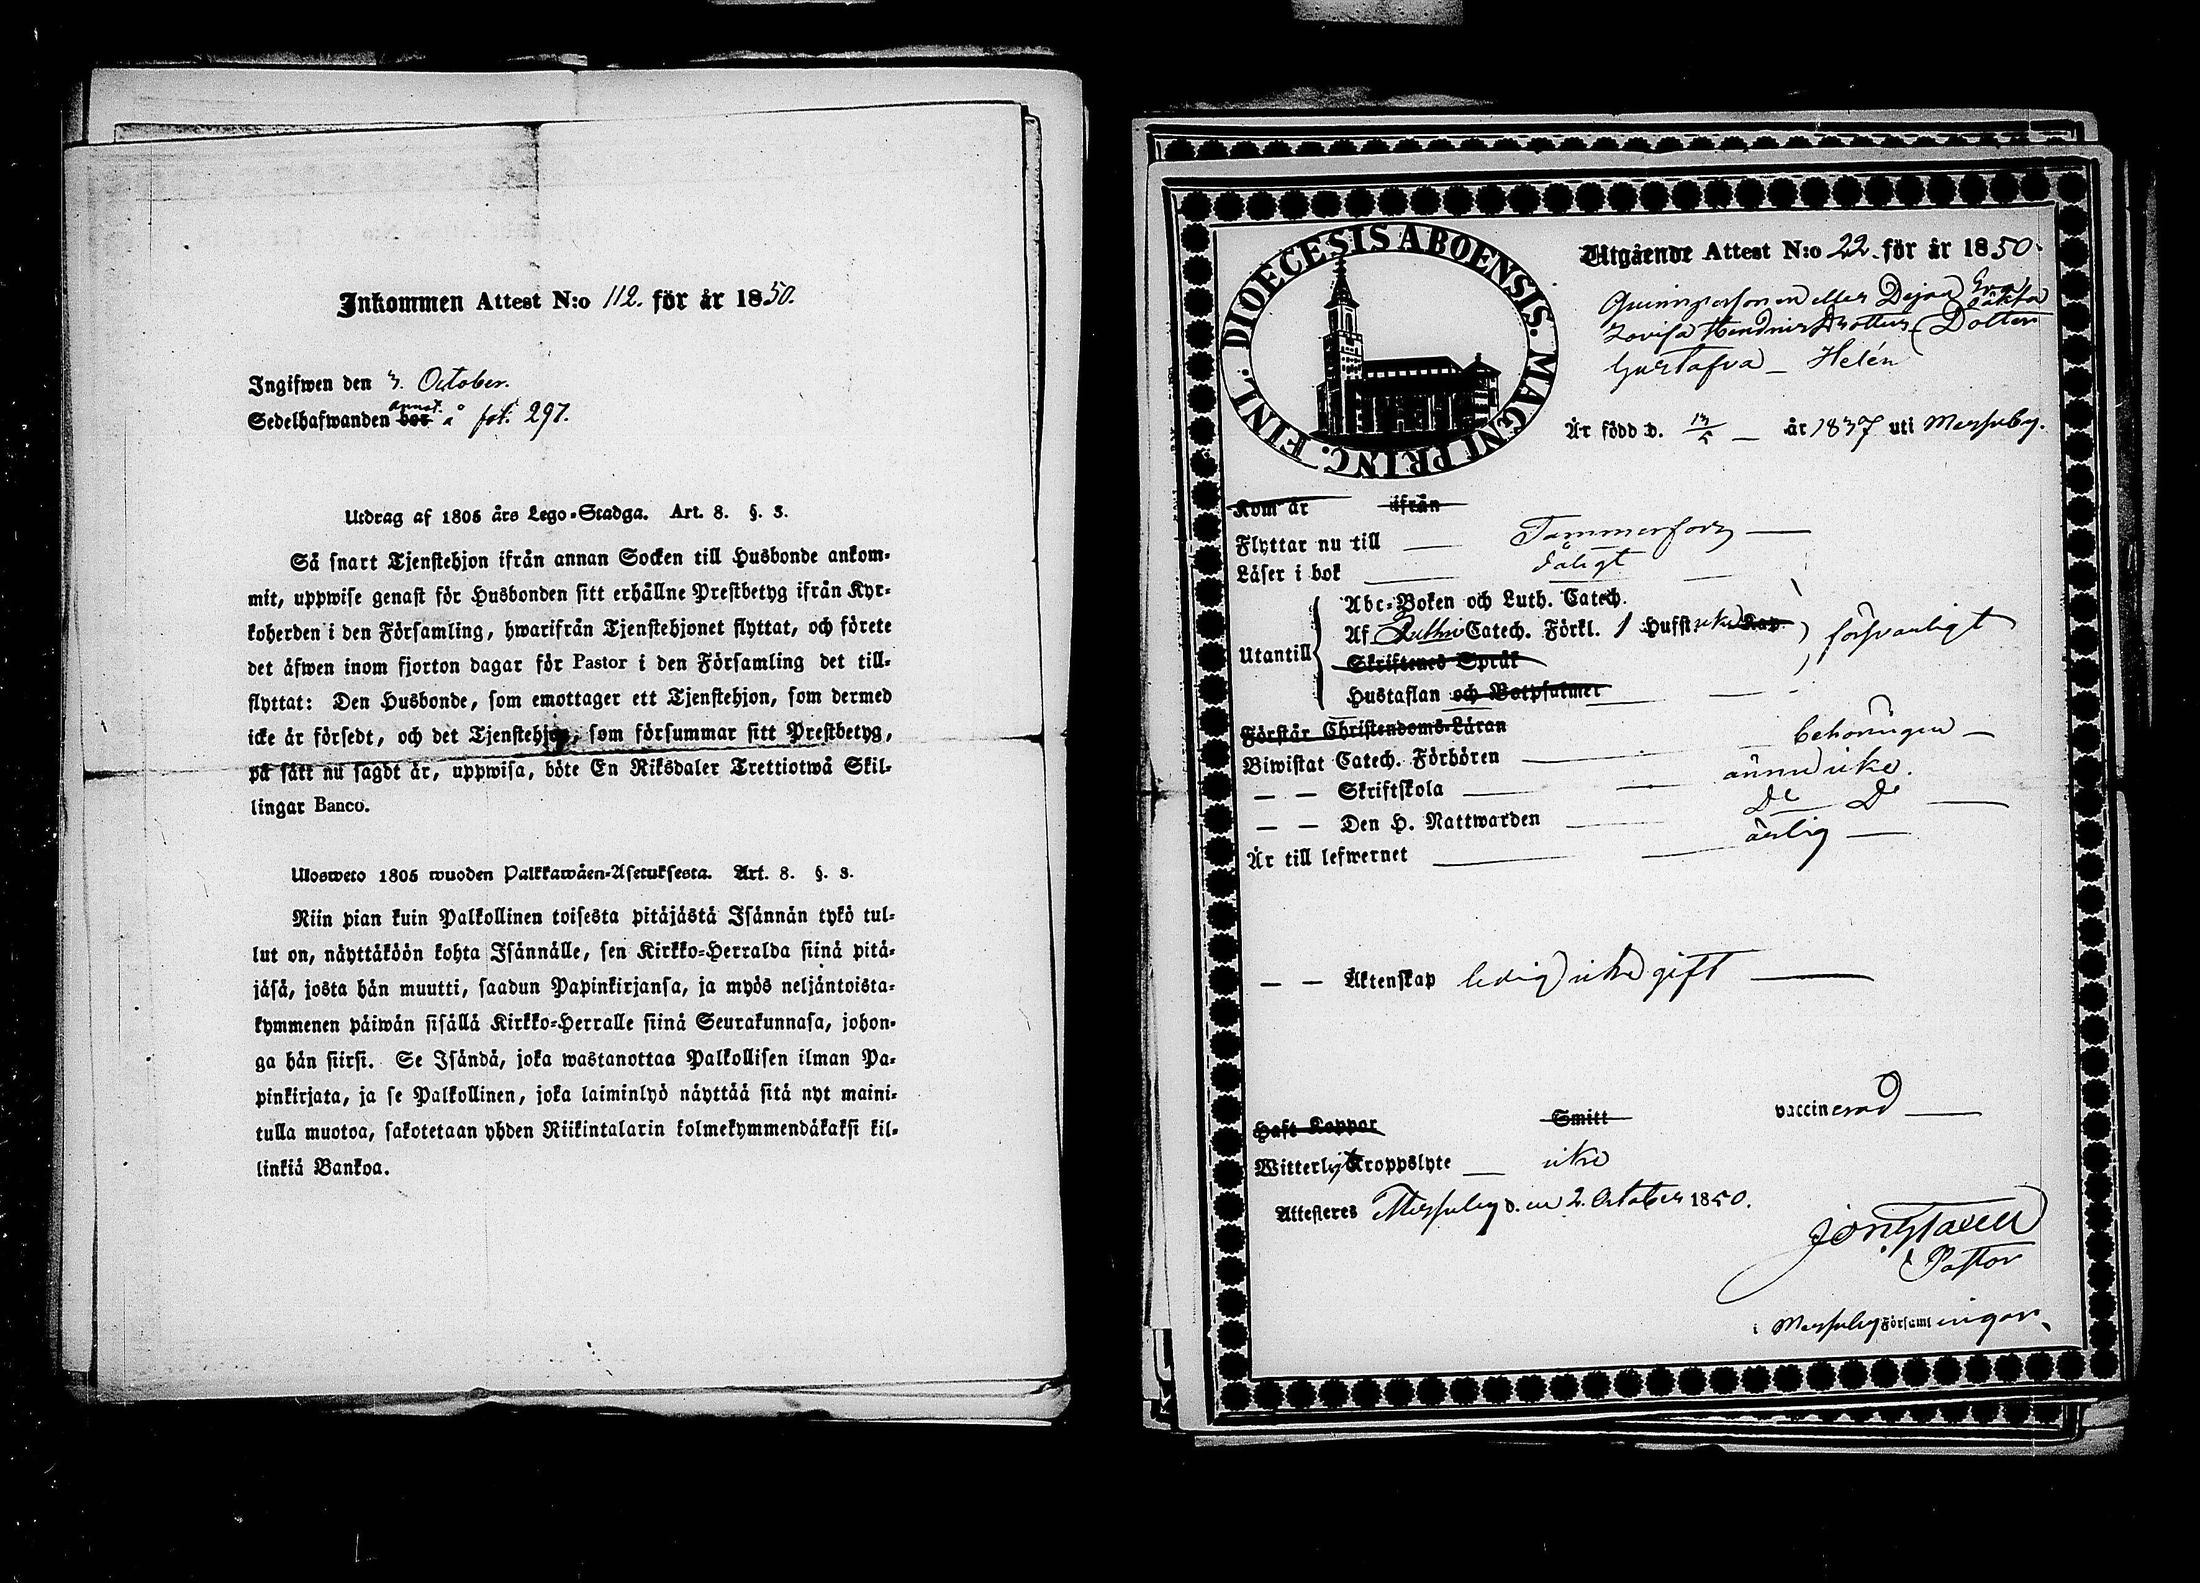 Inkommen Attest N:o 112. för år 1850.
Ingifwen den 3. October.
Sedelhafwanden bor annot. å fol. 297.
Utdrag af 1805 års Lego-Stadga. Art. 8. §. 3.
Så snart Tjenstehjon ifrån annan Socken till Husbonde ankom-
mit, uppwise genast för Husbonden sitt erhållne Prestbetyg ifrån Kyr-
koherden i den Församling, hwarifrån Tjenstehjonet flyttat, och förete
det äfwen inom fjorton dagar för Pastor i den Församling det till-
flyttat: Den Husbonde, som emottager ett Tjenstehjon, som dermed
icke är försedt, och det Tjenstehjon, som försummar sitt Prestbetyg,
på sätt nu sagdt är, uppwisa, böte En Riksdaler Trettiotwå Skil-
lingar Banco.
Ulosweto 1805 wuoden Palkkawäen-Asetuksesta. Art. 8. §. 3.
Niin pian kuin Palkollinen toisesta pitäjästä Isännän tykö tul-
lut on, näyttäköön kohta Isännälle, sen Kirkko-Herralda siinä pitä-
jäsä, josta hän muutti, saadun Papinkirjansa, ja myös neljäntoista-
kymmenen päiwän sisällä Kirkko-Herralle siinä Seurakunnasa, johon-
ga hän siirsi. Se Isändä, joka wastanottaa Palkollisen ilman Pa-
pinkirjata, ja se Palkollinen, joka laiminlyö näyttää sitä nyt maini-
tulla muotoa, sakotetaan yhden Riikintalarin kolmekymmendäkaksi kil-
linkiä Bankoa.
DIOECESIS ABOENSIS. MAGNI PRINC. FINL.
Utgående Attest N:o 22. för år 1850.
Qvinnspersonen eller Dejan Eva
Lovisa Hendrics Dotters oäkta Dotter
Gustafva Helén
Är född d. 13/5 år 1837 uti Messuby.
Kom år ifrån
Flyttar nu till Tammerfors
Läser i bok dåligt
Abc-Boken och Luth. Catech.
Af Catech. Förkl. 1 Hufst. icke Kap.
Utantill försvarligt
Skriftenes Språk
Hustaflan och Botpsalmer
Förstår Christendoms-Läran
Biwistat Catech. Förhören behörigen
— — Skriftskola ännu icke.
— — Den H. Nattwarden Do Do
Är till lefwernet ärlig
— — Äktenskap ledig icke gift
Haft Koppor Smitt vaccinerad
Witterligt Kroppslyte icke
Attesteres Messuby d. en 2. October 1850.
Pastor
i Messuby Församlingar.